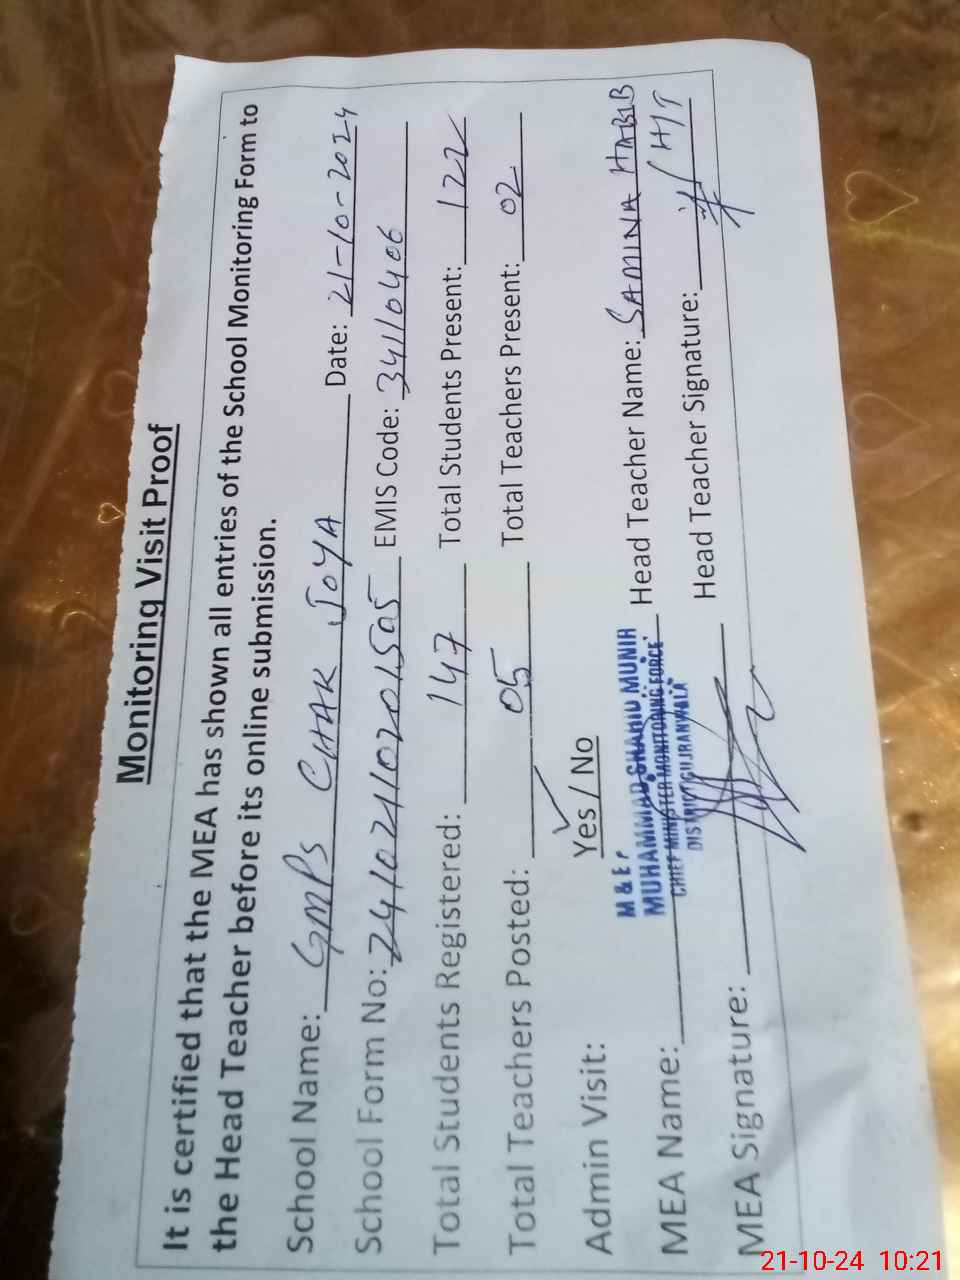 Monitoring Visit Proof
It is certified that the MEA has shown all entries of the School Monitoring Form to
the Head Teacher before its online submission.
School Name: GMPS CHAK JOYA Date: 21-10-2024
School Form No: 2410210201505 EMIS Code: 34110406
Total Students Registered: 147 Total Students Present: 122
Total Teachers Posted: 05 Total Teachers Present: 02
Admin Visit: Yes / No
M & E
MUHAMMAD SHAHID MUNIR
CHIEF MINISTER MONITORING FORCE
DISTRICT GUJRANWALA
MEA Name: Head Teacher Name: SAMINA HABIB
MEA Signature: Head Teacher Signature: / HT
21-10-24 10:21